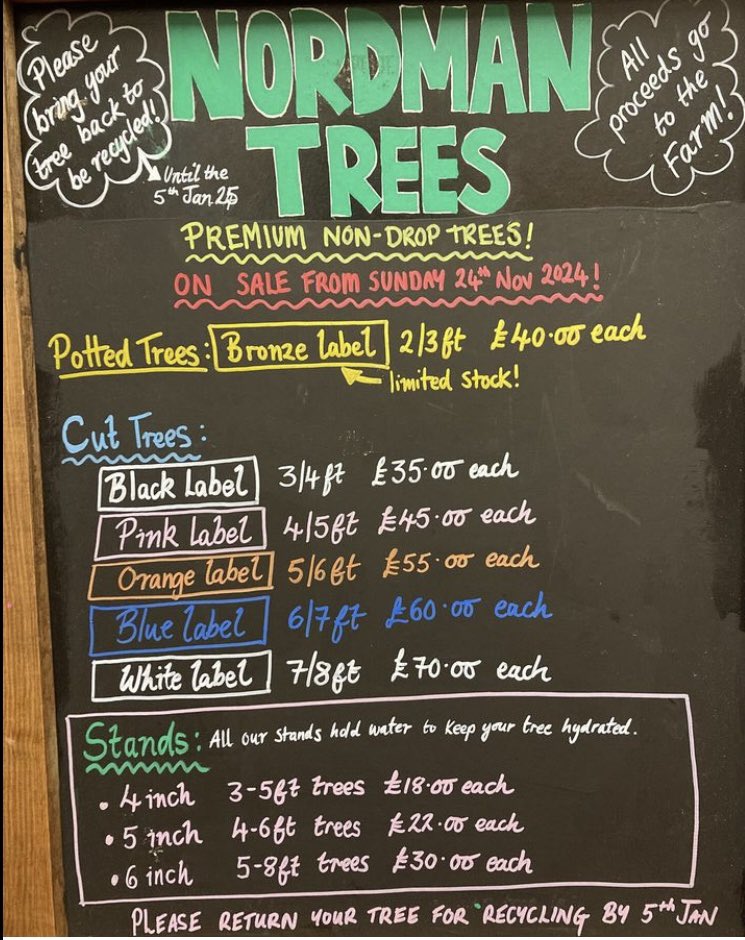 Please
bring your
tree back to
be recycled!
Until the
5th Jan 25
NORDMAN
TREES
All
proceeds go
to the
Farm!
PREMIUM NON-DROP TREES!
ON SALE FROM SUNDAY 24th NOV 2024!
Potted Trees: Bronze label 2/3ft £40.00 each
limited stock!
Cut Trees:
Black Label 3/4ft £35.00 each
Pink Label 4/5ft £45.00 each
Orange label 5/6ft £55.00 each
Blue label 6/7ft £60.00 each
White label 7/8ft £70.00 each
Stands: All our stands hold water to keep your tree hydrated.
• 4 inch 3-5ft trees £18.00 each
• 5 inch 4-6ft trees £22.00 each
• 6 inch 5-8ft trees £30.00 each
PLEASE RETURN YOUR TREE FOR RECYCLING BY 5th JAN